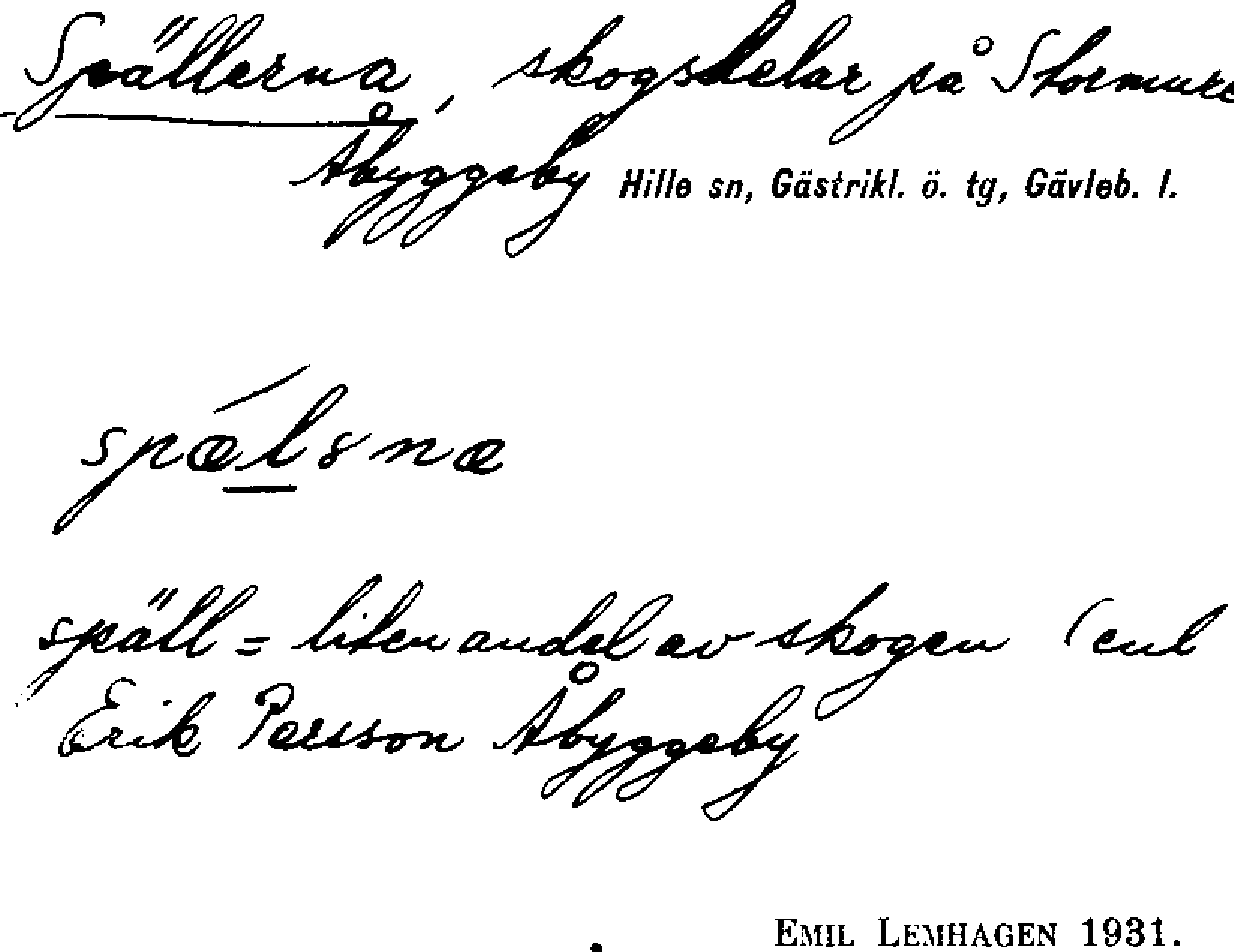 Spällerna, skogsdelar på Stormure
Åbyggeby Hille sn, Gästrikl. ö. tg, Gävleb. l.
spǽlsnæ
späll = liten andel av skogen (enl
Erik Persson Åbyggeby
EMIL LEMHAGEN 1931.